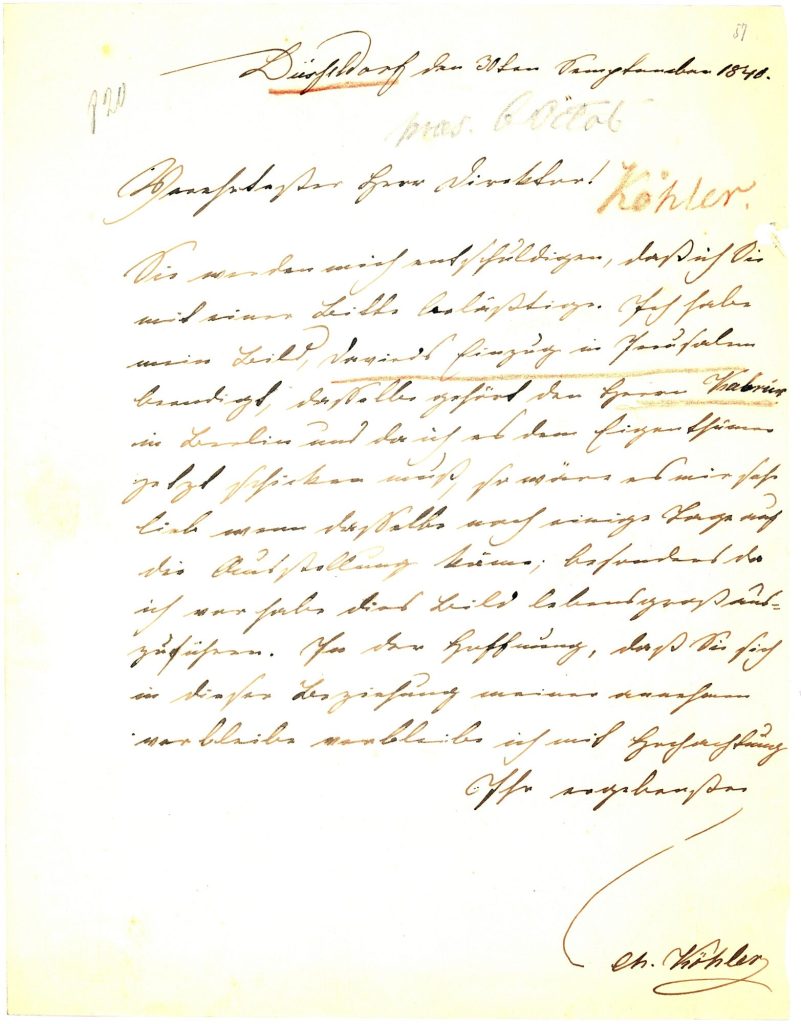 57
Düsseldorf den 30ten Semptember 1840.
p 20
pras. 6 Octob
Verehrtester Herr Direktor!
Köhler.
Sie werden mich entschuldigen, daß ich Sie
mit einer Bitte beläßtige. Ich habe
mein Bild, Davids Einzug in Jerusalem
beendigt, dasselbe gehört den Herrn
in Berlin und da ich es dem Eigenthümer
jetzt schicken muß, so wäre es mir sehr
lieb wenn dasselbe noch einige Tage auf
die Ausstellung käme; besonders da
ich vor habe dies Bild lebensgroß aus-
zuführen. In der Hoffnung, daß Sie sich
in dieser Beziehung meiner annehmen
verbleibe verbleibe ich mit Hochachtung
Ihr ergebenster
Ch. Köhler